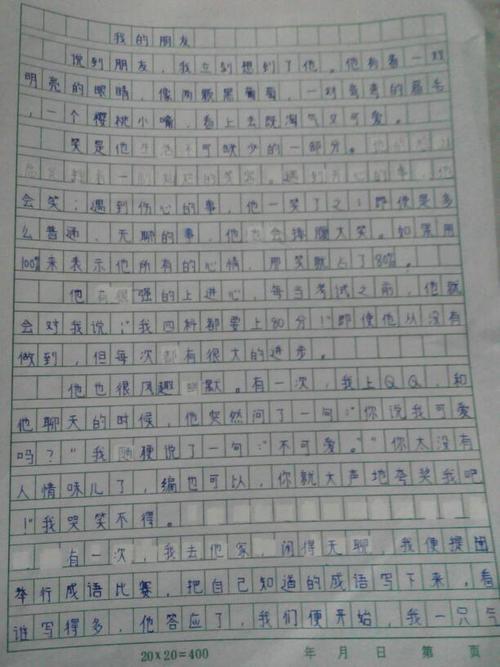 我的朋友
说到朋友，我立刻想到了他。他有着一对
明亮的眼睛，像两颗黑葡萄，一对弯弯的眉毛
，一个樱桃小嘴，看上去既淘气又可爱。
笑是他生活不可缺少的一部分。
遇到开心的事，他
会笑；遇到伤心的事，他一笑了之！即使是多
么普通、无聊的事，他也会捧腹大笑。如果用
100%来表示他所有的心情，那笑就占了80%。
他有很强的上进心，每当考试之前，他就
会对我说："我四科都要上80分！"即使他从没有
做到，但每次都有很大的进步。
他也很风趣幽默。有一次，我上QQ，和
他聊天的时候，他突然问了一句："你说我可爱
吗？"我随便说了一句："不可爱。""你太没有
人情味儿了，编也可以，你就大声地夸奖我吧
！"我哭笑不得。
有一次，我去他家，闲得无聊，我便提团
举行成语比赛，把自己知道的成语写下来，看
谁写得多，他答应了，我们便开始，我一只气
20×20=400 年 月 日 第 页